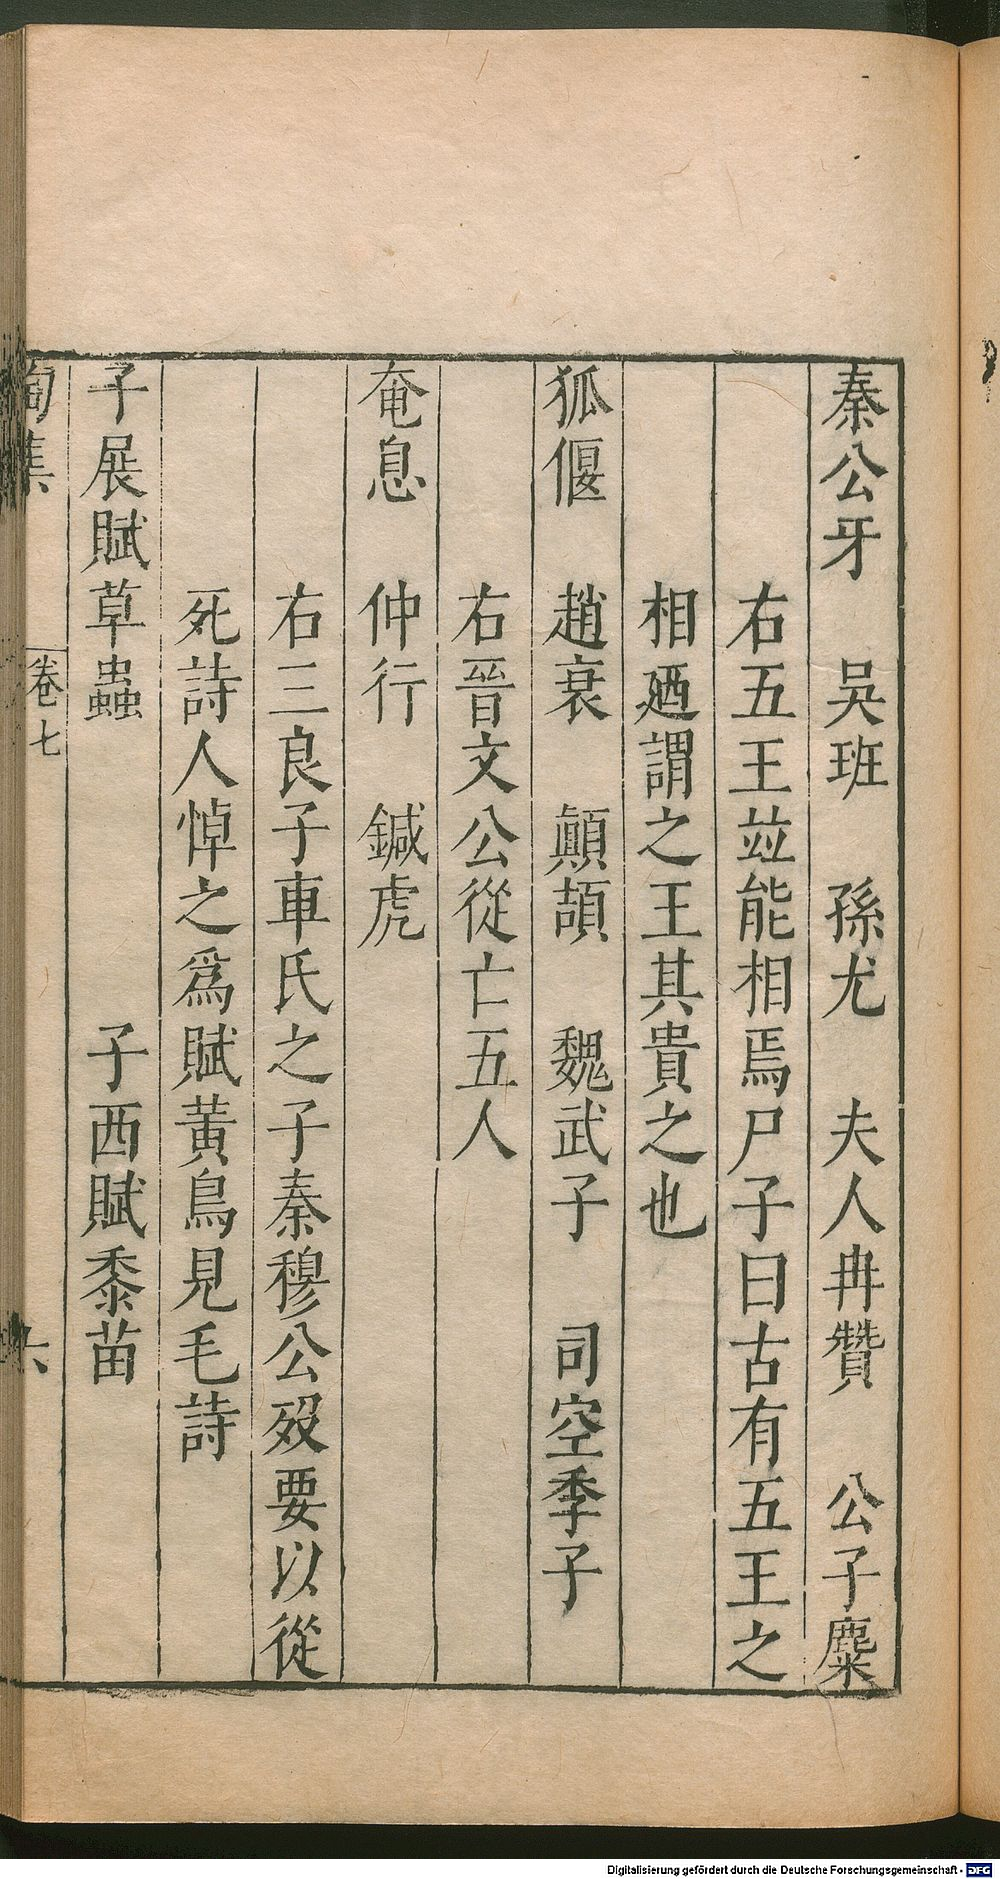 秦公牙　吳班　孫尤　夫人冉贊　公子麋
右五王並能相焉尸子曰古有五王之
相迺謂之王其貴之也
狐偃　趙衰　顛頡　魏武子　司空季子
右晉文公從亡五人
奄息　仲行　鍼虎
右三良子車氏之子秦穆公歿要以從
死詩人悼之爲賦黃鳥見毛詩
子展賦草蟲　子西賦黍苗
陶集　卷七　六
Digitalisierung gefördert durch die Deutsche Forschungsgemeinschaft - DFG